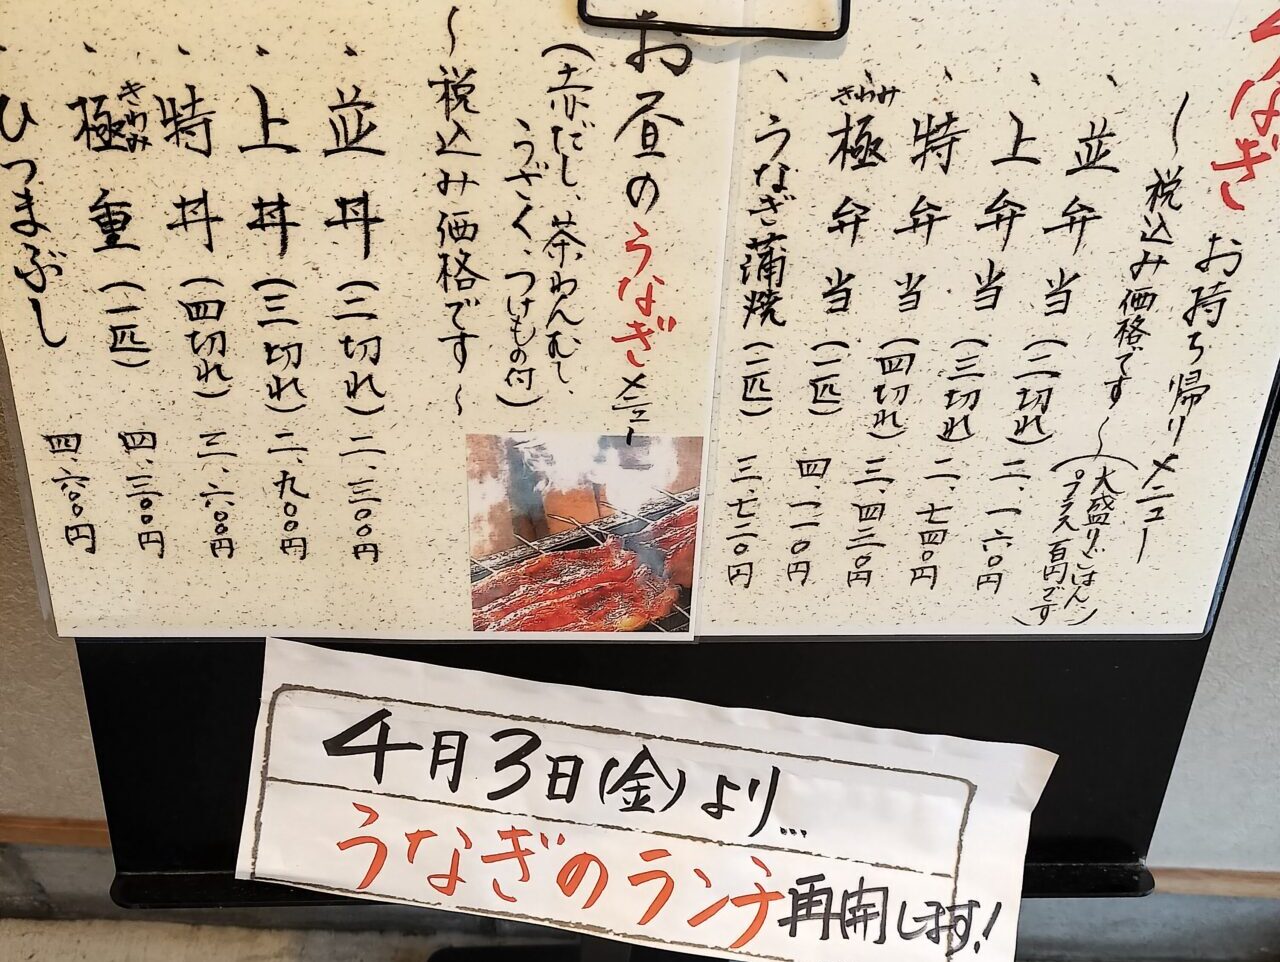 うなぎ お持ち帰りメニュー
〜税込み価格です〜
(大盛り(ごはん)
プラス百円です)
、並弁当(二切れ) 二、一六〇円
、上弁当(三切れ) 二、七四〇円
、特弁当(四切れ) 三、四二〇円
、極弁当(一匹) 四、一一〇円
きわみ
、うなぎ蒲焼(一匹) 三、七二〇円
お昼のうなぎメニュー
(赤だし、茶わんむし、
うざく、つけもの付)
〜税込み価格です〜
、並丼(二切れ) 二、三〇〇円
、上丼(三切れ) 二、九〇〇円
、特丼(四切れ) 三、六〇〇円
、極重(一匹) 四、三〇〇円
きわみ
、ひつまぶし 四、六〇〇円
4月3日(金)より...
うなぎのランチ再開します!